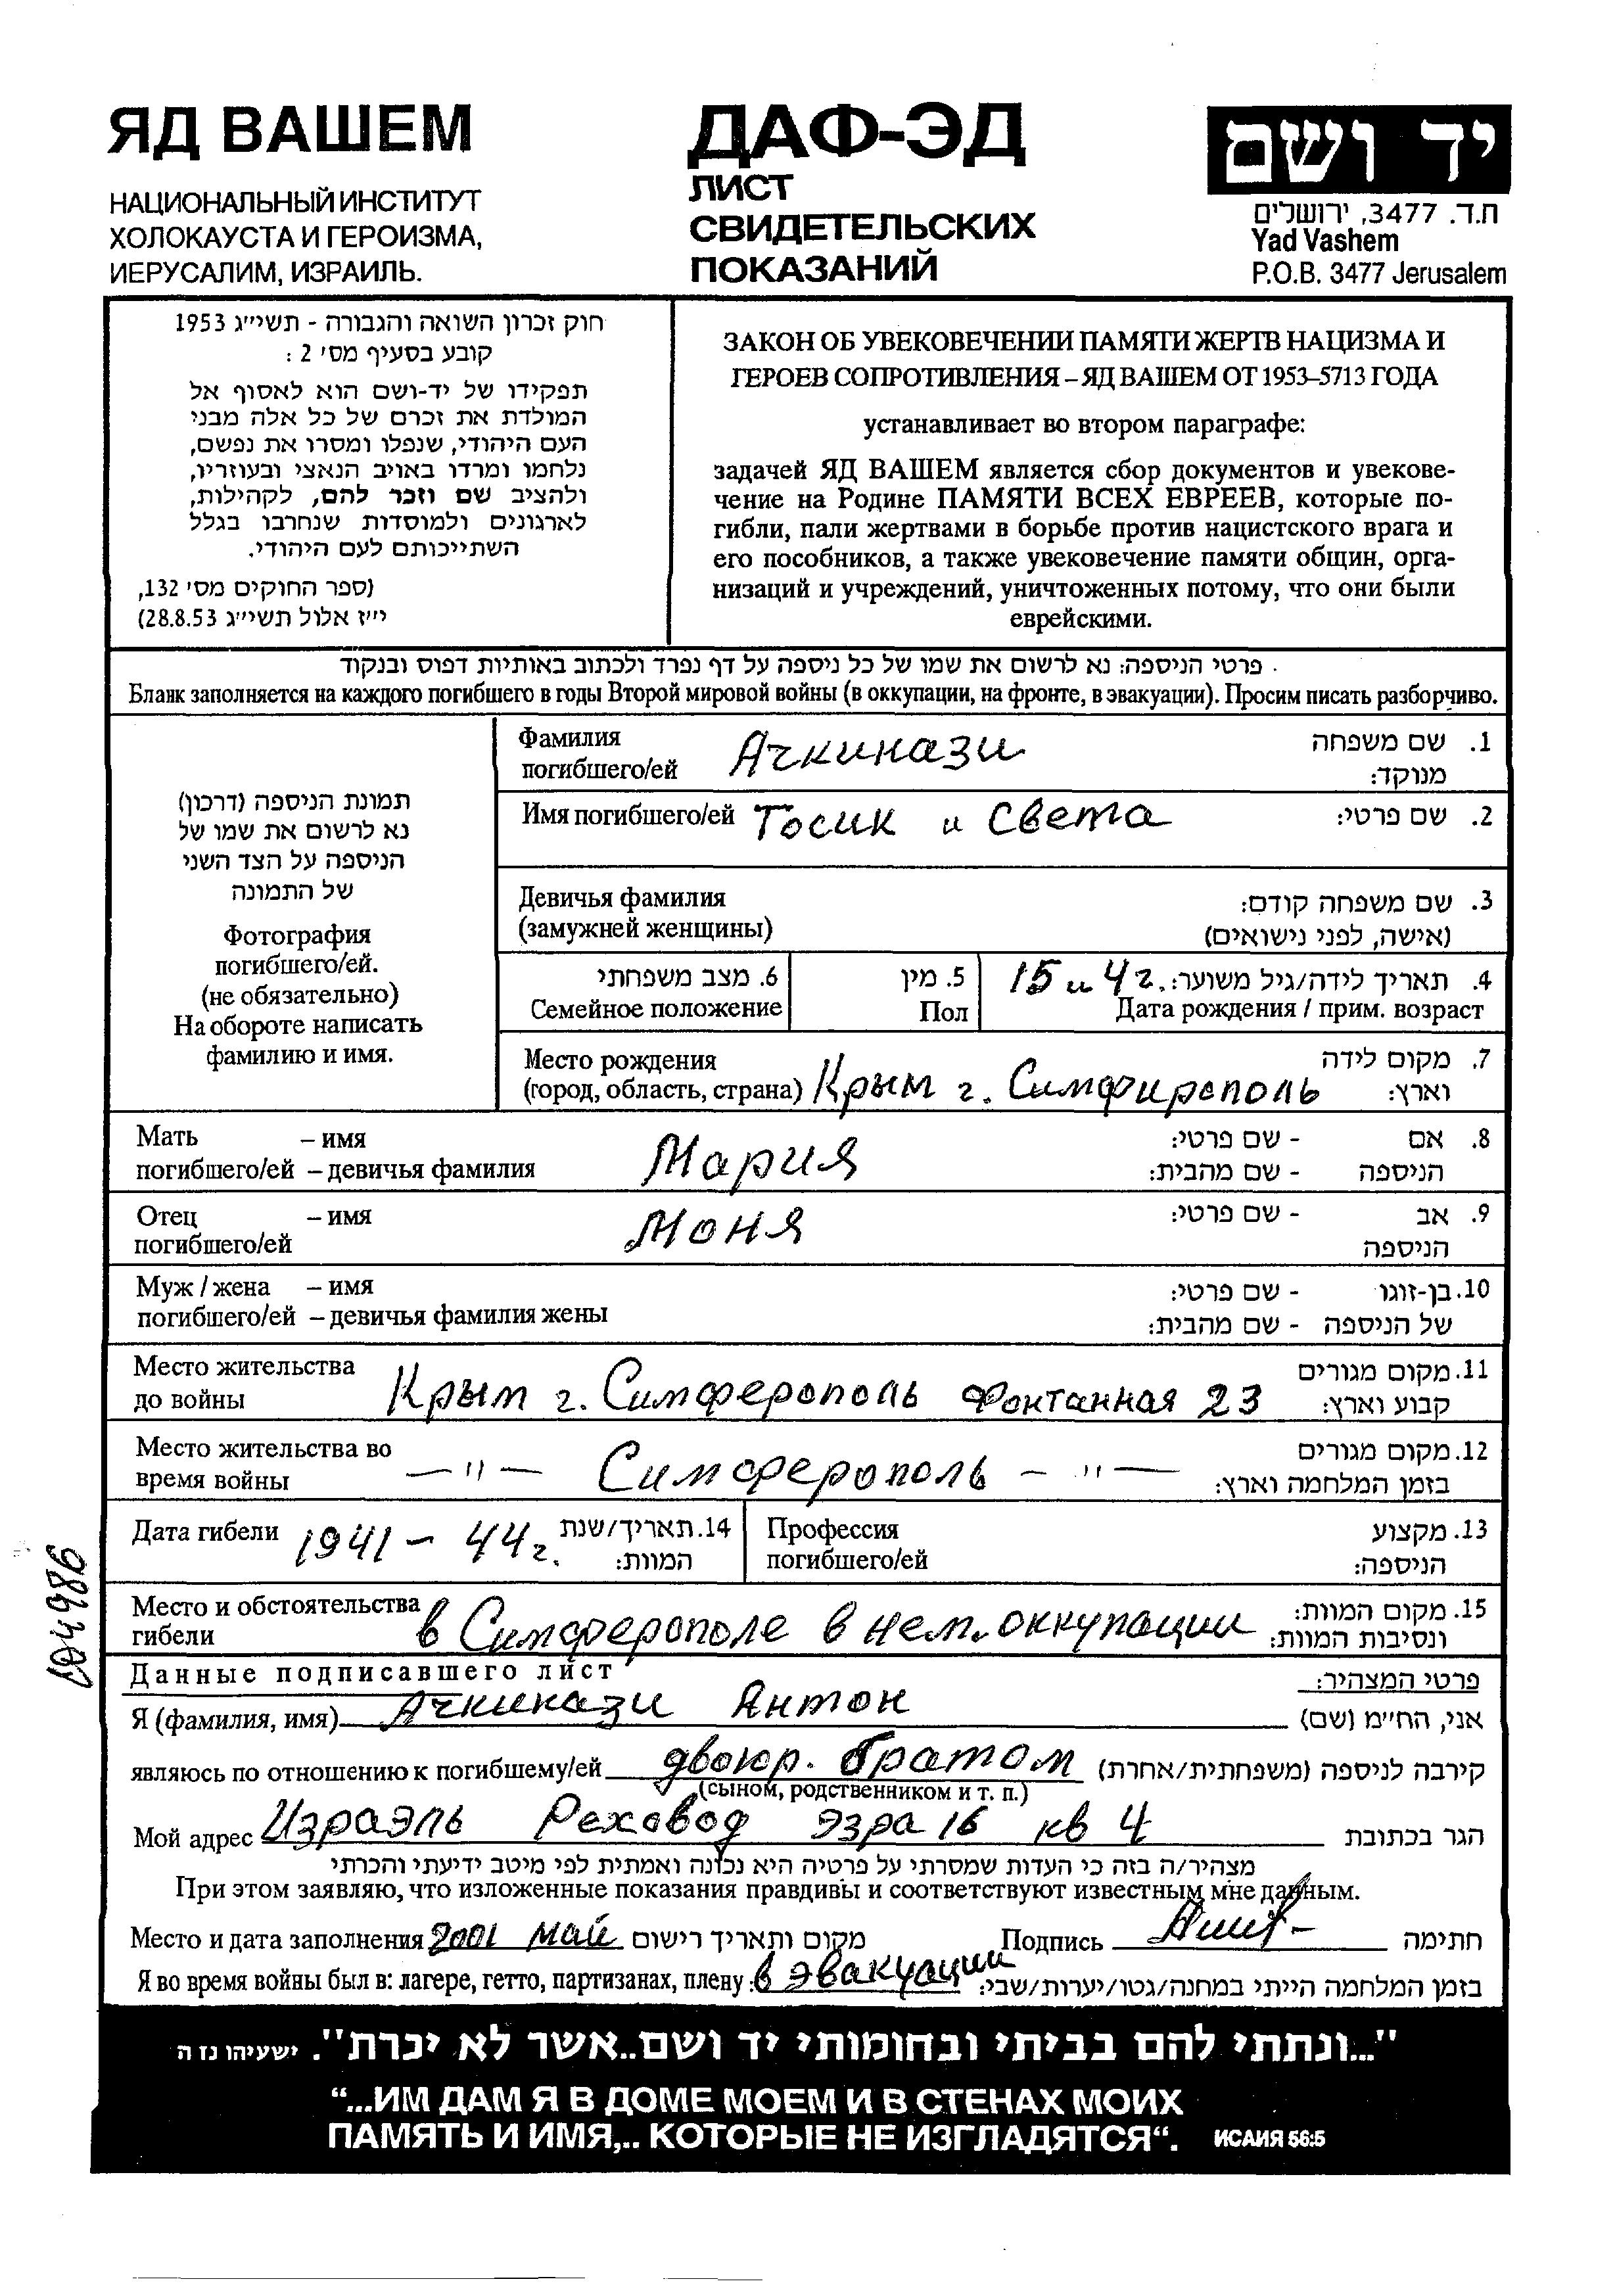 ЯД ВАШЕМ
НАЦИОНАЛЬНЫЙ ИНСТИТУТ
ХОЛОКАУСТА И ГЕРОИЗМА,
ИЕРУСАЛИМ, ИЗРАИЛЬ.
ДАФ-ЭД
ЛИСТ
СВИДЕТЕЛЬСКИХ
ПОКАЗАНИЙ
יד ושם
ת.ד. 3477, ירושלים
Yad Vashem
P.O.B. 3477 Jerusalem
חוק זכרון השואה והגבורה - תשי״ג 1953
קובע בסעיף מס׳ 2 :
תפקידו של יד-ושם הוא לאסוף אל
המולדת את זכרם של כל אלה מבני
העם היהודי, שנפלו ומסרו את נפשם,
נלחמו ומרדו באויב הנאצי ובעוזריו,
ולהציב שם וזכר להם, לקהילות,
לארגונים ולמוסדות שנחרבו בגלל
השתייכותם לעם היהודי.
(ספר החוקים מס׳ 132,
י״ז אלול תשי״ג 28.8.53)
ЗАКОН ОБ УВЕКОВЕЧЕНИИ ПАМЯТИ ЖЕРТВ НАЦИЗМА И
ГЕРОЕВ СОПРОТИВЛЕНИЯ – ЯД ВАШЕМ ОТ 1953–5713 ГОДА
устанавливает во втором параграфе:
задачей ЯД ВАШЕМ является сбор документов и увекове-
чение на Родине ПАМЯТИ ВСЕХ ЕВРЕЕВ, которые по-
гибли, пали жертвами в борьбе против нацистского врага и
его пособников, а также увековечение памяти общин, орга-
низаций и учреждений, уничтоженных потому, что они были
еврейскими.
פרטי הניספה: נא לרשום את שמו של כל ניספה על דף נפרד ולכתוב באותיות דפוס ובנקוד
Бланк заполняется на каждого погибшего в годы Второй мировой войны (в оккупации, на фронте, в эвакуации). Просим писать разборчиво.
תמונת הניספה (דרכון)
נא לרשום את שמו של
הניספה על הצד השני
של התמונה
Фотография
погибшего/ей.
(не обязательно)
На обороте написать
фамилию и имя.
Фамилия Ачкинази 1. שם משפחה
погибшего/ей מנוקד:
Имя погибшего/ей Тосик и Света 2. שם פרטי:
Девичья фамилия 3. שם משפחה קודם:
(замужней женщины) (אישה, לפני נישואים)
6. מצב משפחתי 5. מין 15 и 4 г. 4. תאריך לידה/גיל משוער:
Семейное положение Пол Дата рождения / прим. возраст
Место рождения 7. מקום לידה
(город, область, страна) Крым г. Симфирополь וארץ:
Мать – имя Мария 8. אם - שם פרטי:
погибшего/ей – девичья фамилия הניספה - שם מהבית:
Отец – имя Моня 9. אב - שם פרטי:
погибшего/ей הניספה
Муж / жена – имя 10. בן-זוגו - שם פרטי:
погибшего/ей – девичья фамилия жены של הניספה - שם מהבית:
Место жительства 11. מקום מגורים
до войны Крым г. Симферополь Фонтанная 23 קבוע וארץ:
Место жительства во 12. מקום מגורים
время войны — " — Симферополь — " — בזמן המלחמה וארץ:
Дата гибели 1941 – 44 г. 14. תאריך/שנת Профессия 13. מקצוע
המוות: погибшего/ей הניספה:
Место и обстоятельства 15. מקום המוות:
гибели в Симферополе в нем. оккупации ונסיבות המוות:
Данные подписавшего лист פרטי המצהיר:
Я (фамилия, имя) Ачкинази Антон אני, החי״מ (שם)
являюсь по отношению к погибшему/ей двоюр. братом קירבה לניספה (משפחתית/אחרת)
(сыном, родственником и т. п.)
Мой адрес Израэль Реховод Эзра 16 кв 4 הגר בכתובת
מצהיר/ה בזה כי העדות שמסרתי על פרטיה היא נכונה ואמתית לפי מיטב ידיעתי והכרתי
При этом заявляю, что изложенные показания правдивы и соответствуют известным мне данным.
Место и дата заполнения 2001 май מקום ותאריך רישום Подпись חתימה
Я во время войны был в: лагере, гетто, партизанах, плену: в эвакуации בזמן המלחמה הייתי במחנה/גטו/יערות/שבי:
"...ונתתי להם בביתי ובחומותי יד ושם..אשר לא יכרת". ישעיהו נז ה
“...ИМ ДАМ Я В ДОМЕ МОЕМ И В СТЕНАХ МОИХ
ПАМЯТЬ И ИМЯ,.. КОТОРЫЕ НЕ ИЗГЛАДЯТСЯ“. ИСАИЯ 56:5